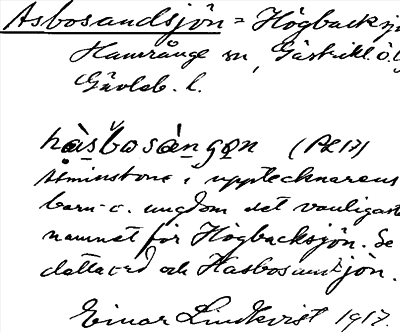 Asbosandsjön = Högbacksjö
Hamrånge sn, Gästrikl. ö.
Gävleb. l.
hàsbosàngọn (Al 17)
Åtminstone i upptecknarens
barn- o. ungdom det vanligaste
namnet för Högbacksjön. Se
detta ord och Hasbosandsjön.
Einar Lindkvist 1917.